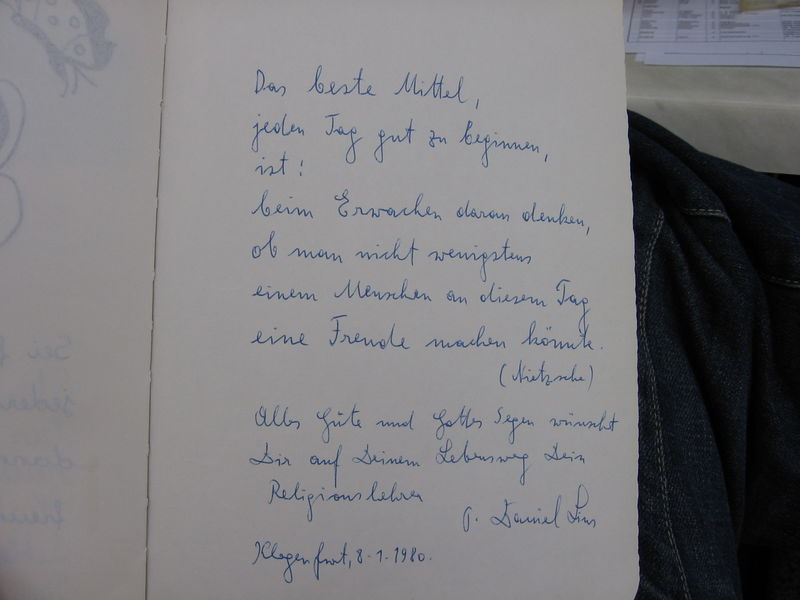 Das beste Mittel,
jeden Tag gut zu beginnen,
ist:
beim Erwachen daran denken,
ob man nicht wenigstens
einem Menschen an diesem Tag
eine Freude machen könnte.
(Nietzsche)
Alles Gute und Gottes Segen wünscht
Dir auf Deinem Lebensweg Dein
Religionslehrer
P. Daniel
Klagenfurt, 8.1.1980.